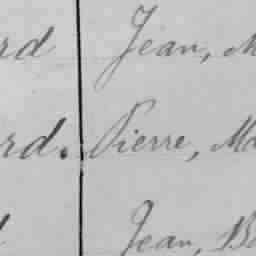 rd Jean, M
rd. Pierre, Ma
Jean, Ba